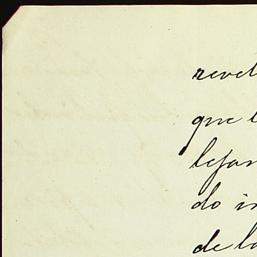 revel
que l
lejan
do in
de la